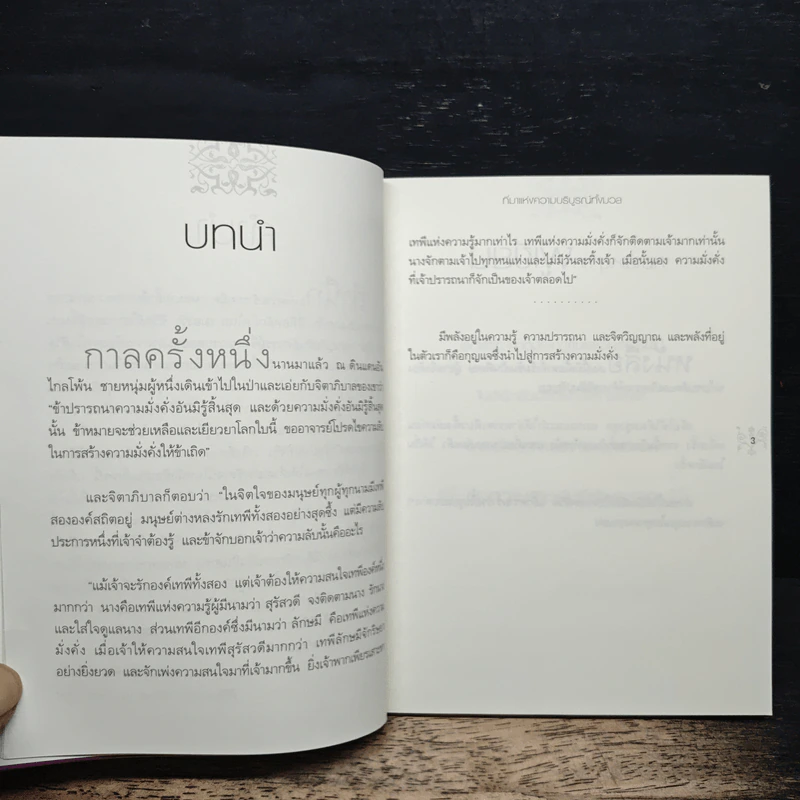 บทนำ
กาลครั้งหนึ่งนานมาแล้ว ณ ดินแดนอัน
ไกลโพ้น ชายหนุ่มผู้หนึ่งเดินเข้าไปในป่าและเอ่ยกับจิตาภิบาลของเขาว่า
“ข้าปรารถนาความมั่งคั่งอันมิรู้สิ้นสุด และด้วยความมั่งคั่งอันมิรู้สิ้นสุด
นั้น ข้าหมายจะช่วยเหลือและเยียวยาโลกใบนี้ ขออาจารย์โปรดไขความลับ
ในการสร้างความมั่งคั่งให้ข้าเถิด”
และจิตาภิบาลก็ตอบว่า “ในจิตใจของมนุษย์ทุกผู้ทุกนามมีเทพี
สององค์สถิตอยู่ มนุษย์ต่างหลงรักเทพีทั้งสองอย่างสุดซึ้ง แต่มีความลับ
ประการหนึ่งที่เจ้าจำต้องรู้ และข้าจักบอกเจ้าว่าความลับนั้นคืออะไร
“แม้เจ้าจะรักองค์เทพีทั้งสอง แต่เจ้าต้องให้ความสนใจเทพีองค์หนึ่ง
มากกว่า นางคือเทพีแห่งความรู้ผู้มีนามว่า สุรัสวดี จงติดตามนาง รักนาง
และใส่ใจดูแลนาง ส่วนเทพีอีกองค์ซึ่งมีนามว่า ลักษมี คือเทพีแห่งความ
มั่งคั่ง เมื่อเจ้าให้ความสนใจเทพีสุรัสวดีมากกว่า เทพีลักษมีจักริษยา
อย่างยิ่งยวด และจักเพ่งความสนใจมาที่เจ้ามากขึ้น ยิ่งเจ้าพากเพียรเสาะหา
ที่มาแห่งความบริบูรณ์ทั้งมวล
เทพีแห่งความรู้มากเท่าไร เทพีแห่งความมั่งคั่งก็จักติดตามเจ้ามากเท่านั้น
นางจักตามเจ้าไปทุกหนแห่งและไม่มีวันละทิ้งเจ้า เมื่อนั้นเอง ความมั่งคั่ง
ที่เจ้าปรารถนาก็จักเป็นของเจ้าตลอดไป”
..........
มีพลังอยู่ในความรู้ ความปรารถนา และจิตวิญญาณ และพลังที่อยู่
ในตัวเราก็คือกุญแจซึ่งนำไปสู่การสร้างความมั่งคั่ง
3